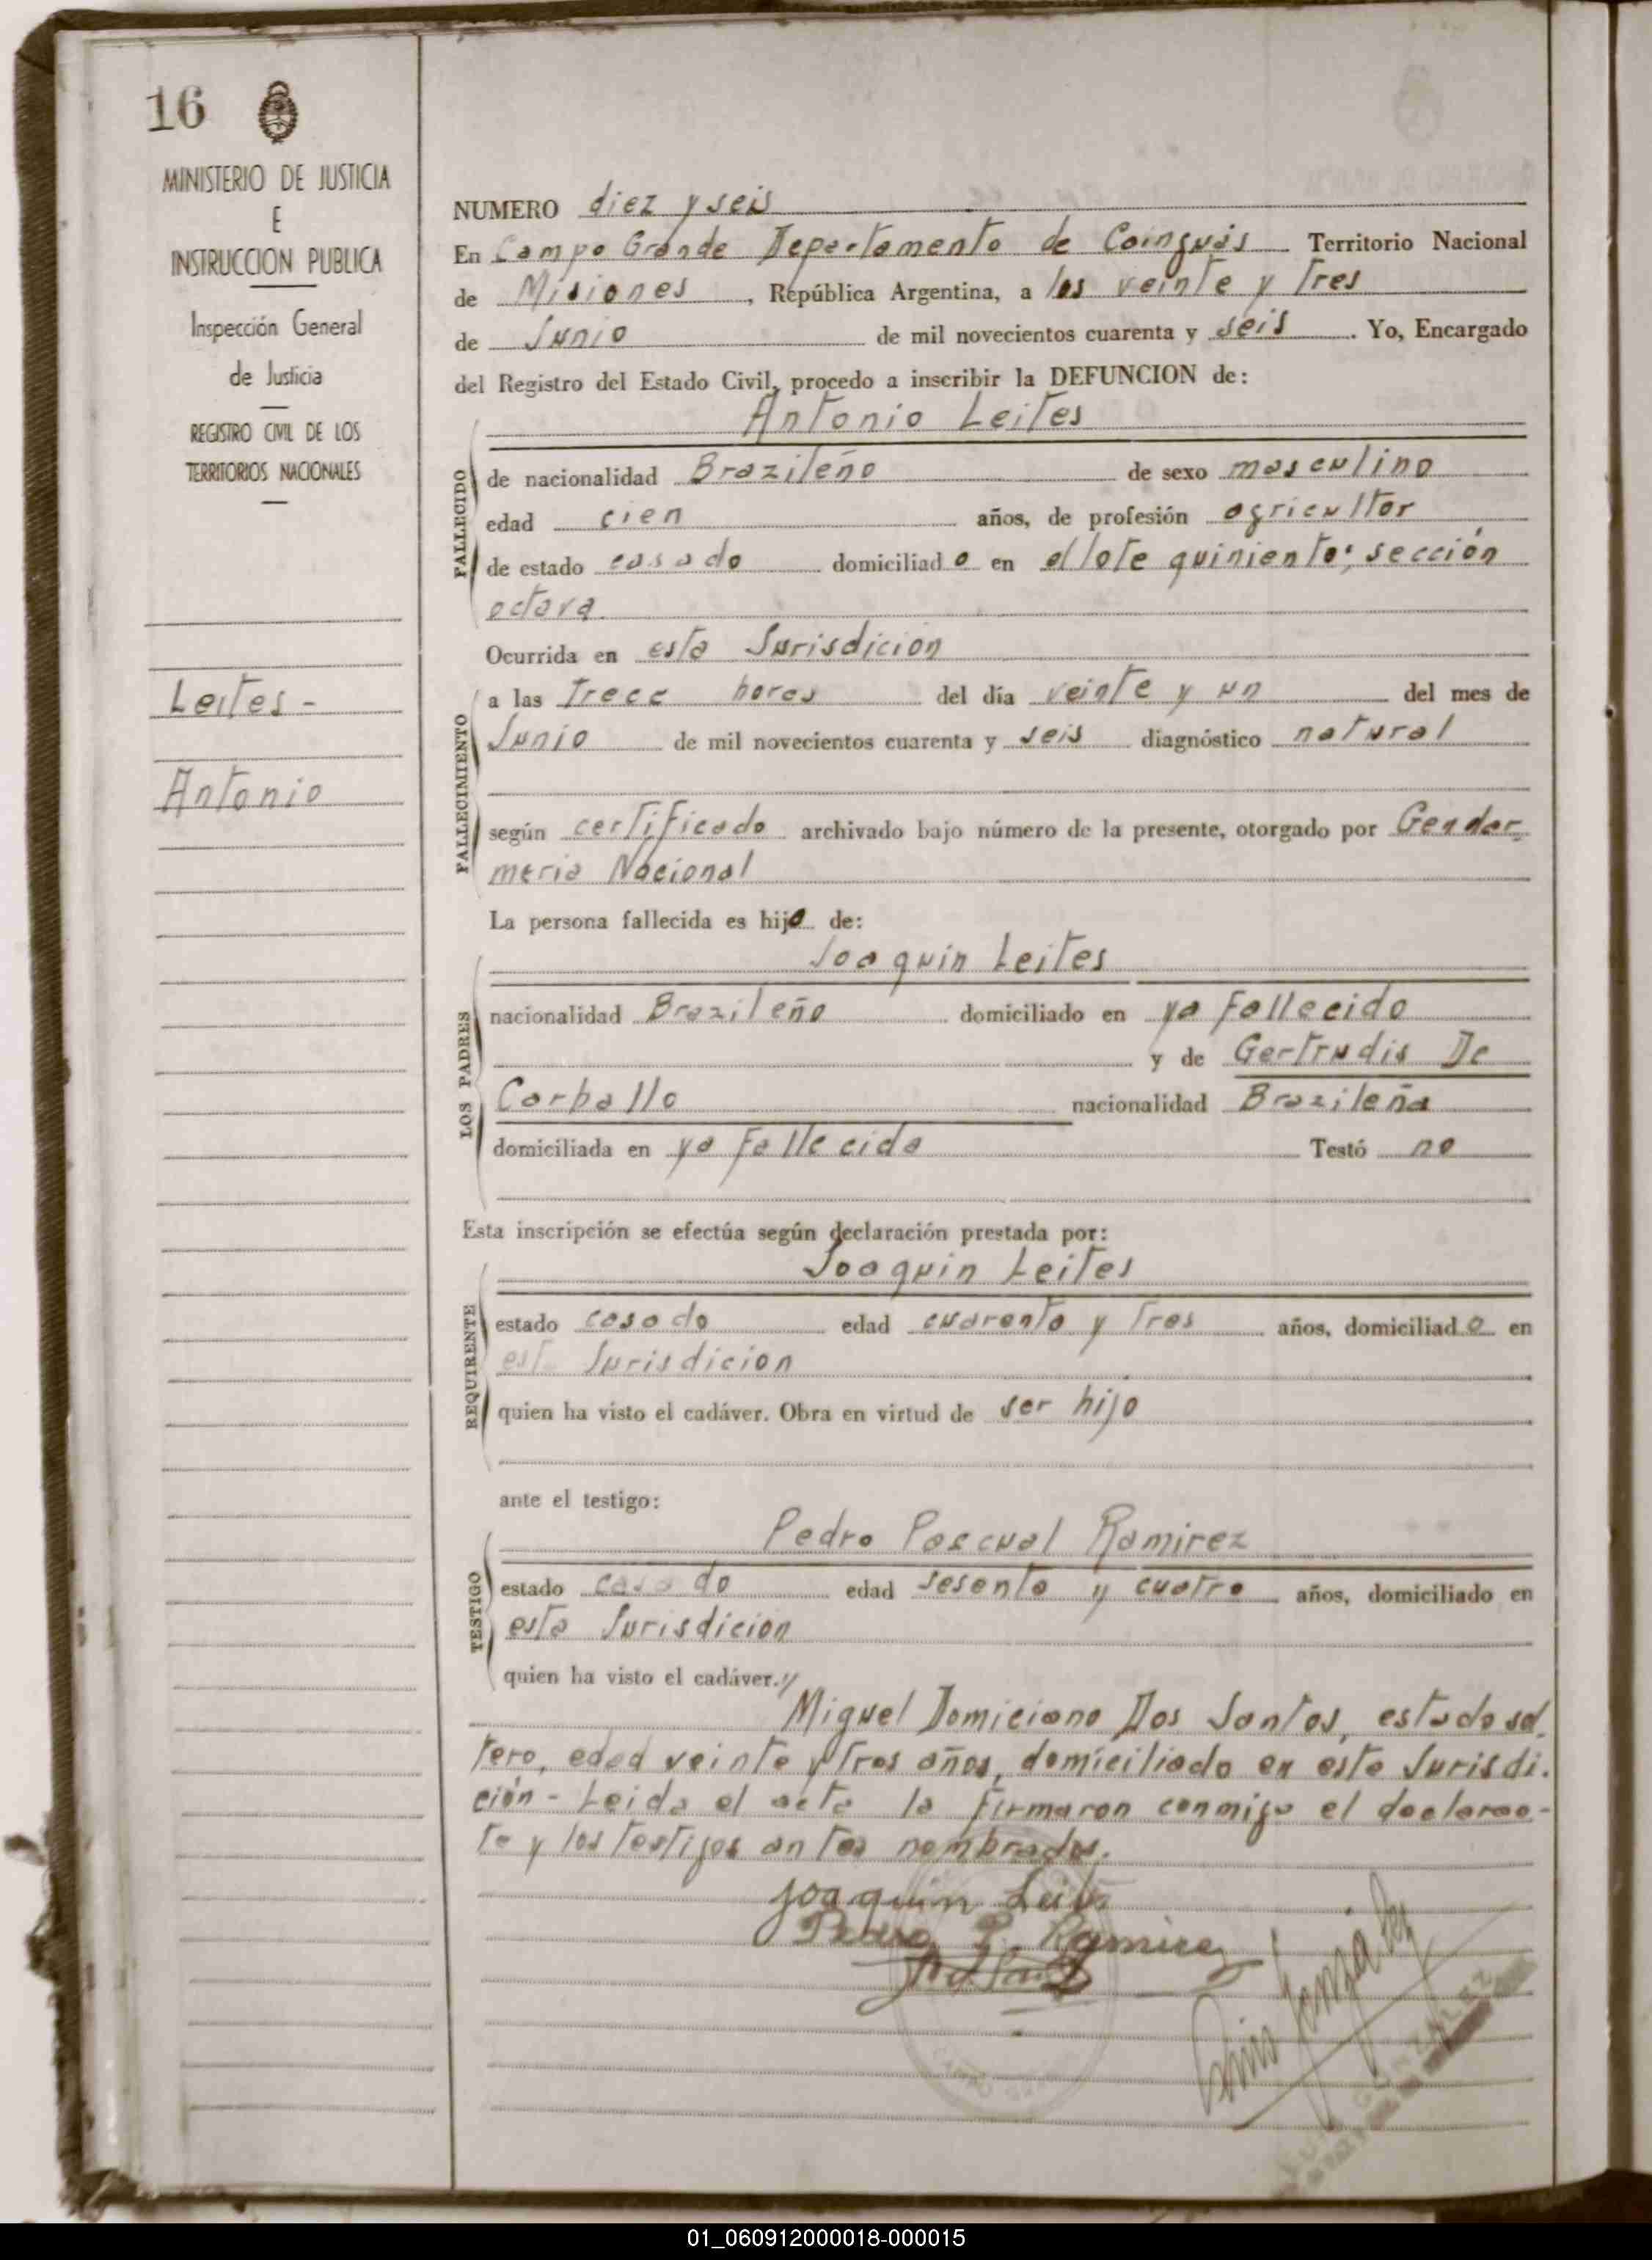 16
MINISTERIO DE JUSTICIA
E
INSTRUCCION PUBLICA
Inspección General
de Justicia
REGISTRO CIVIL DE LOS
TERRITORIOS NACIONALES
Leites-
Antonio
NUMERO diez y seis
En Campo Grande Departamento de Cainguás Territorio Nacional
de Misiones, República Argentina, a los veinte y tres
de Junio de mil novecientos cuarenta y seis. Yo, Encargado
del Registro del Estado Civil, procedo a inscribir la DEFUNCION de:
Antonio Leites
FALLECIDO
de nacionalidad Brazileño de sexo masculino
edad cien años, de profesión agricultor
de estado casado domiciliado en el lote quinientos, sección
octava
Ocurrida en esta Jurisdicion
FALLECIMIENTO
a las trece horas del día veinte y un del mes de
Junio de mil novecientos cuarenta y seis diagnóstico natural
según certificado archivado bajo número de la presente, otorgado por Gendar-
meria Nacional
La persona fallecida es hijo de:
Joaquin Leites
LOS PADRES
nacionalidad Brazileño domiciliado en ya fallecido
y de Gertrudis De
Carballo nacionalidad Brazileña
domiciliada en ya fallecida Testó no
Esta inscripción se efectúa según declaración prestada por:
Joaquin Leites
REQUIRENTE
estado casado edad cuarenta y tres años, domiciliado en
est Jurisdicion
quien ha visto el cadáver. Obra en virtud de ser hijo
ante el testigo:
Pedro Pascual Ramirez
TESTIGO
estado casado edad sesenta y cuatro años, domiciliado en
esta Jurisdicion
quien ha visto el cadáver. y
Miguel Domiciano Dos Santos, estado sol
tero, edad veinte y tres años, domiciliado en esta Jurisdi-
ción - Leida el acta la firmaron conmigo el declaran-
te y los testigos antes nombrados.
Joaquin Leites
Pedro P. Ramirez
Luis González
CAMPO GRANDE
LUIS GONZALEZ
01_060912000018-000015